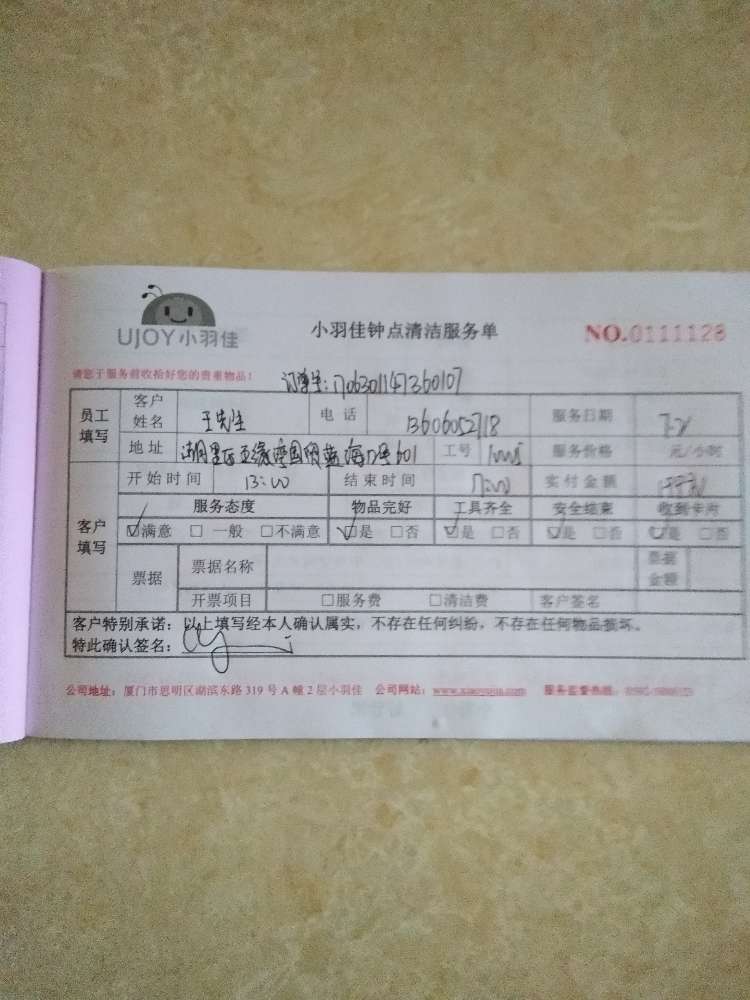 UJOY小羽佳
小羽佳钟点清洁服务单
NO.0111128
请您于服务前收拾好您的贵重物品！
订单号：1706301147360107
员工填写 客户姓名 王先生 电话 13606052718 服务日期
地址 湖里区 601 工号 服务价格 元/小时
客户填写 开始时间 13:00 结束时间 17:00 实付金额
服务态度 物品完好 工具齐全 安全结束 收到卡片
☑满意 □一般 □不满意 ☑是 □否 ☑是 □否 ☑是 □否 ☑是 □否
票据 票据名称 票据金额
开票项目 □服务费 □清洁费 客户签名
客户特别承诺：以上填写经本人确认属实，不存在任何纠纷，不存在任何物品损坏。
特此确认签名：
公司地址：厦门市思明区湖滨东路319号A幢2层小羽佳 公司网站： 服务监督热线：